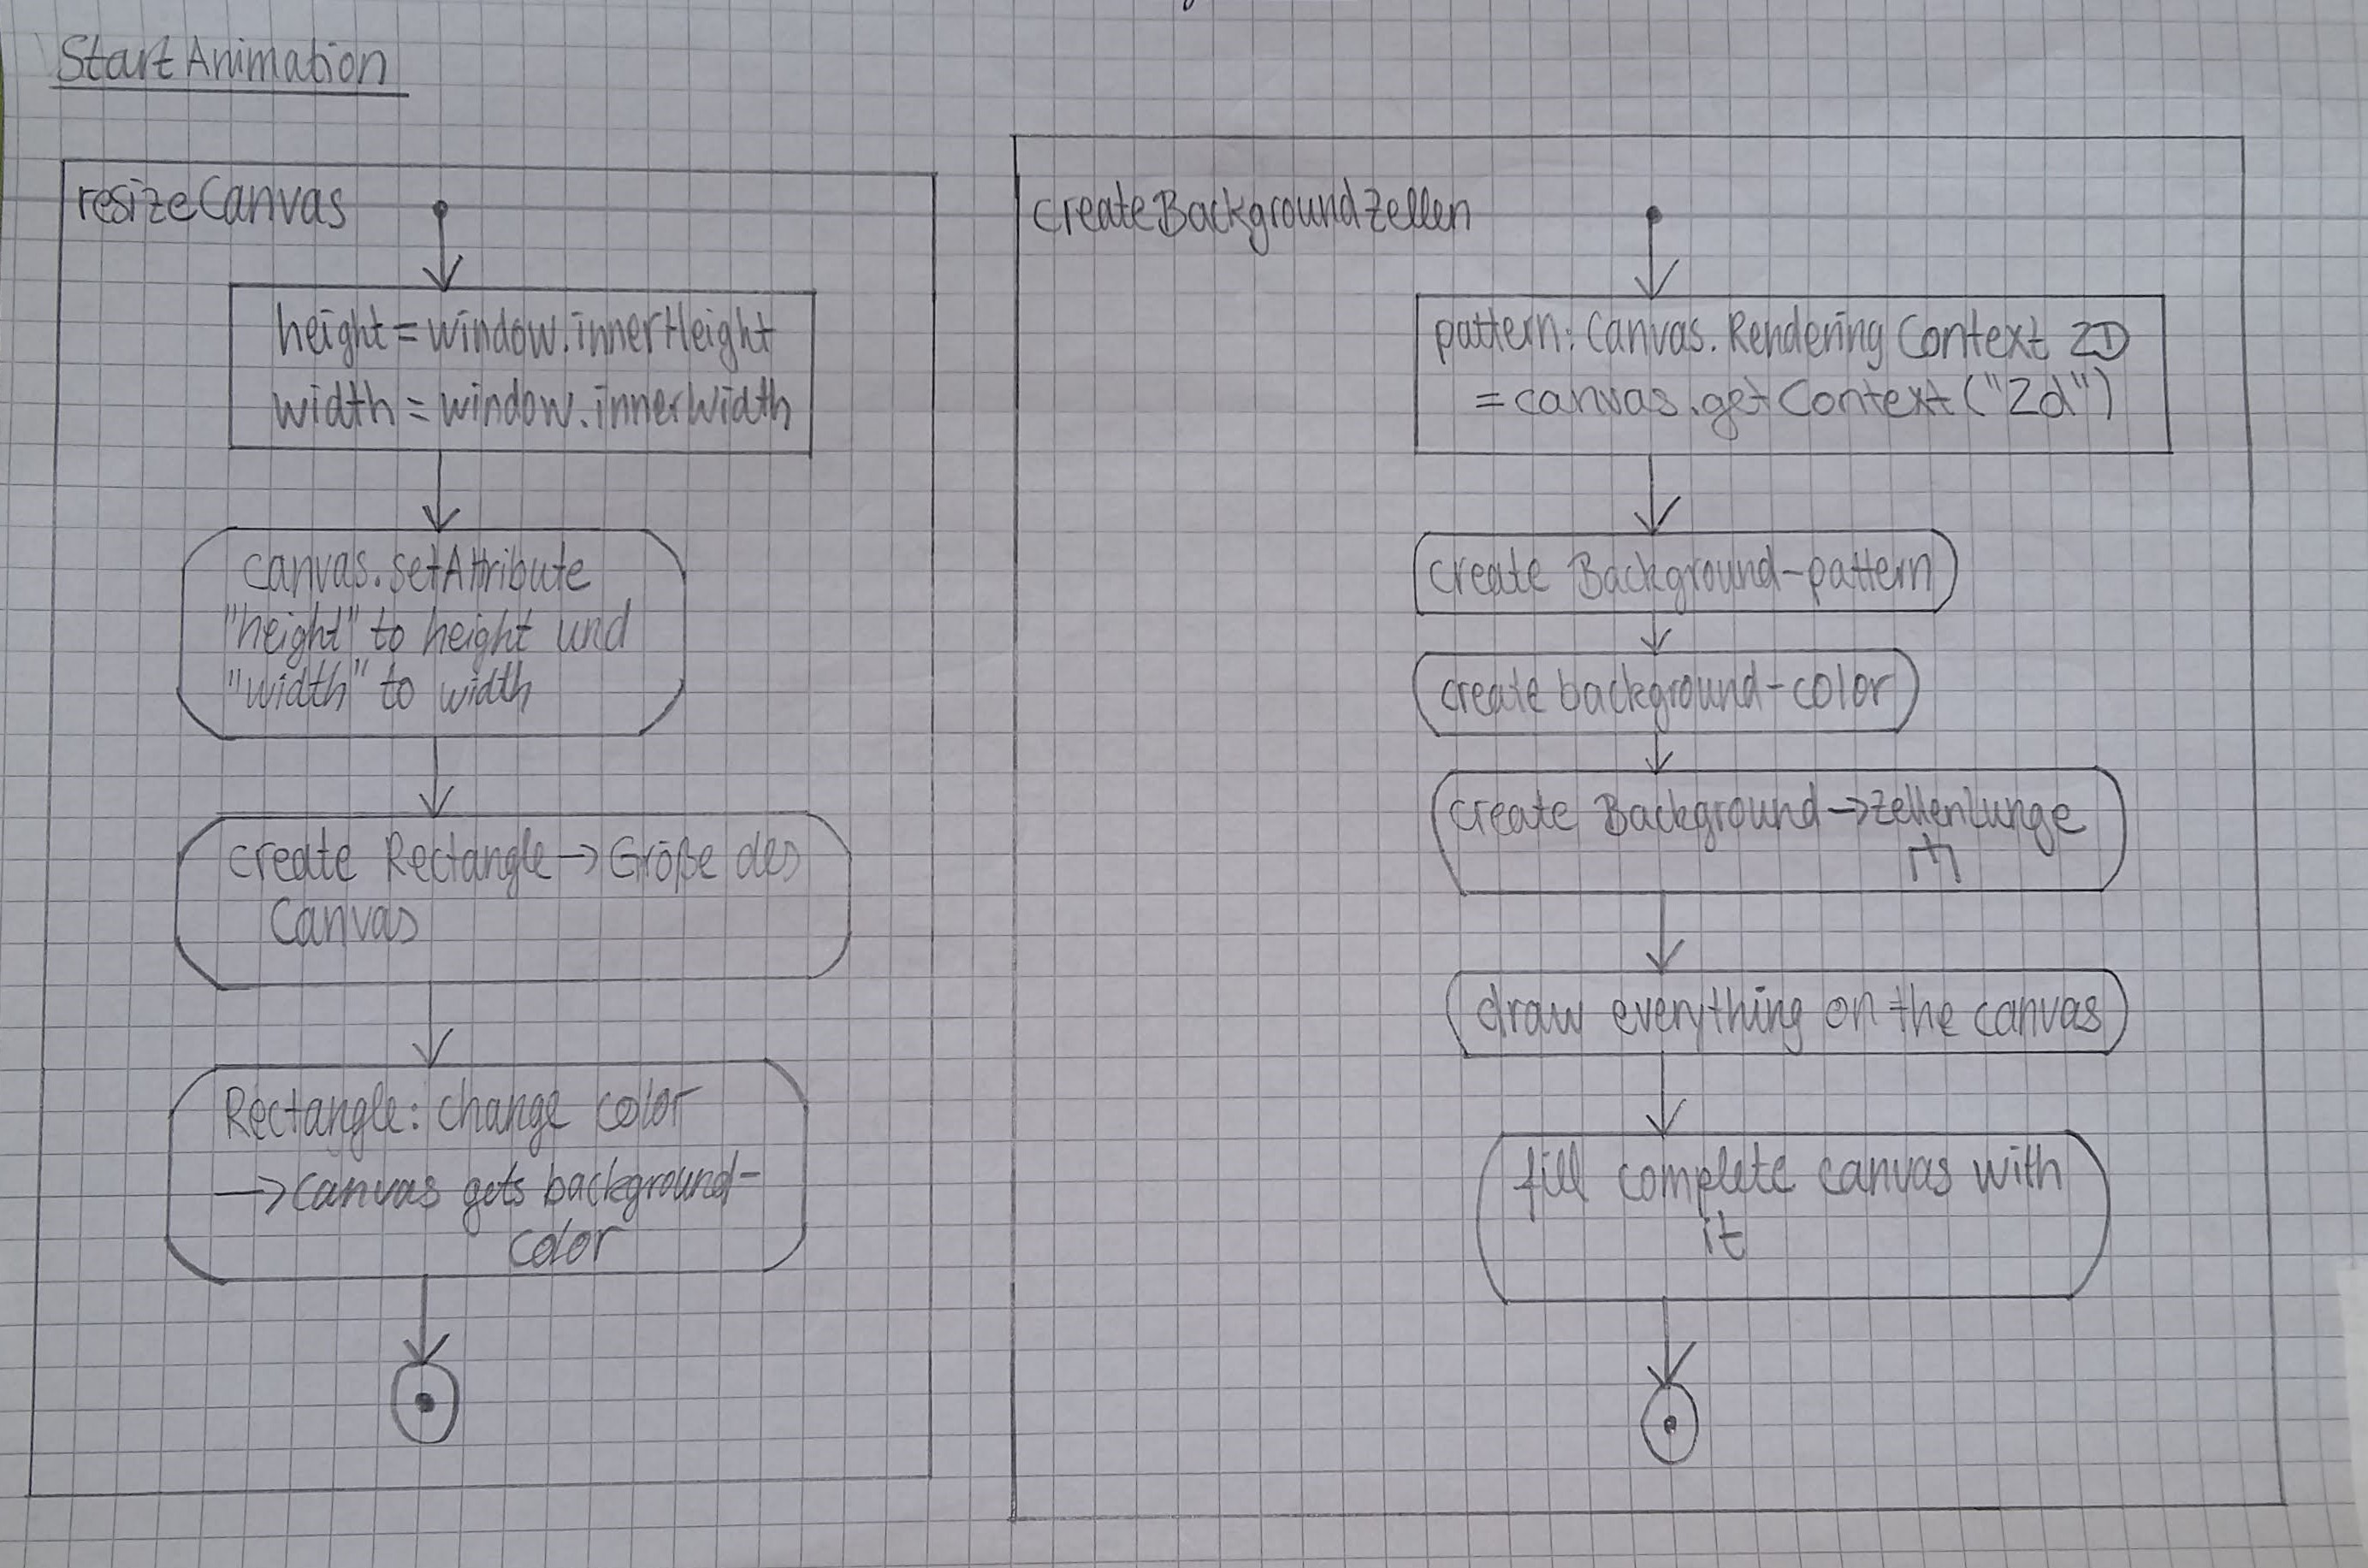 StartAnimation
resizeCanvas
height = window.innerHeight
width = window.innerWidth
canvas.setAttribute
"height" to height und
"width" to width
create Rectangle → Größe des
Canvas
Rectangle: change color
→ Canvas gets background-
color
createBackgroundZellen
pattern: Canvas.Rendering Context 2D
= canvas.getContext("2d")
create Background-pattern
create background-color
create Background → Zellenlunge
draw everything on the canvas
fill complete canvas with
it